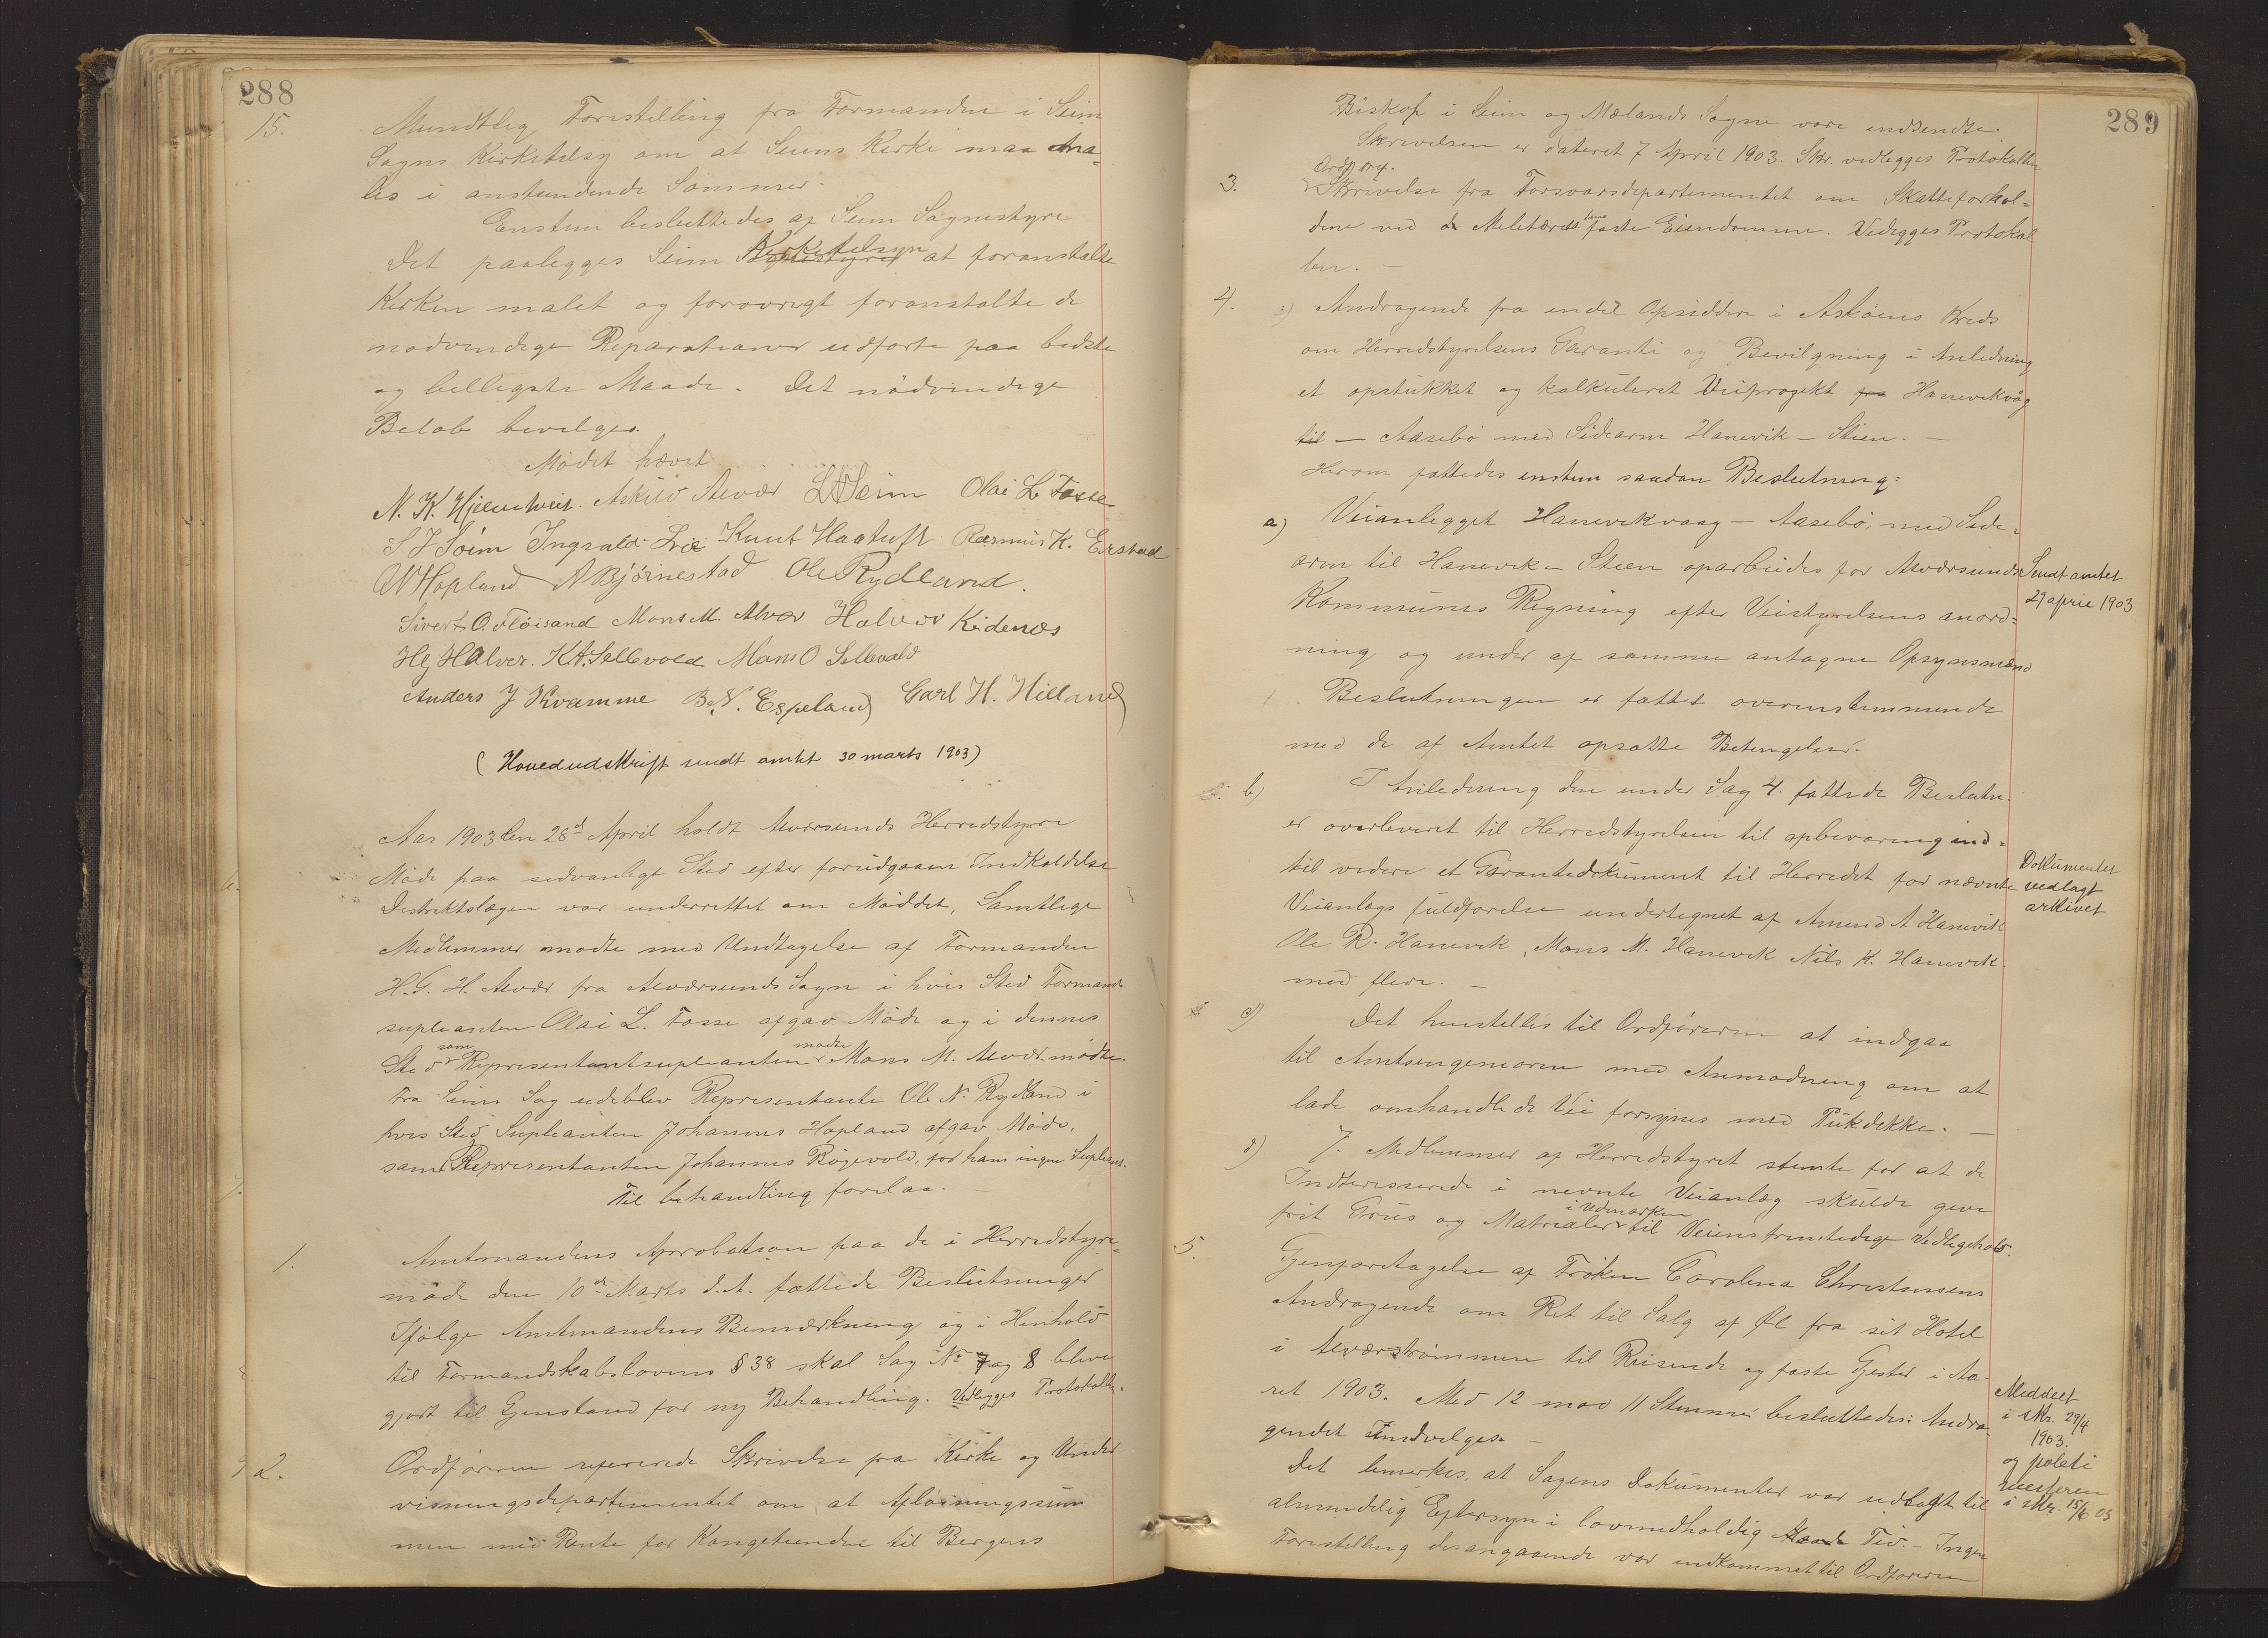 288
15. Mundtlig Forestilling fra Formanden i Seim
Sogns Kirketilsy om at Seims Kirke maa ma-
les i anstundende Sommer.
Enstem besluttedes af Seim Sognestyre
Det paalegges Seim Kirketilsyn at foranstalte
Kirken malet og forøvrigt foranstalte de
nødvendige Reparationer udførte paa bedste
og billigste Maade. Det nødvendige
Beløb bevilges.
Mødet hævet
N. K. Hjelmtveit. Askild Alvær L A Seim Olai L. Fosse
S J Soim Ingvald Lrie Knut Haatuft Rasmus K. Eirstad
W Hopland A Bjørnestad Ole Rydland.
Sivert O. Fløisand Mons M. Alver Halvor Kidenæs
HgHAlver. K A. Sellevold Mons O Sellevold
Anders J Kvamme B. N. Espeland Carl H. Hilland
(Hovedudskrift sendt amtet 30 marts 1903)
Aar 1903 den 28d April holdt Alværsunds Herredstyre
Møde paa sedvanligt Sted efter forudgaaen Indkaldelse
Distriktslægen var underrettet om Møddet, Samtlige
Medlemmer mødte med Undtagelse af Formanden
H. G. H. Alvær fra Alværsunds Sogn i hvis Sted Formand-
supleanten Olai L. Fosse afgav Møde og i dennes
Sted som Representantsupleanten mødte Mons M. Alvær mødte.
Fra Seim Sog udeblev Representante Ole N. Rydland i
hvis Sted Supleanten Johannes Hopland afgav Møde,
samt Representanten Johannes Bøgevold, for ham ingen Supleant.
Til behandling forelaa.
1. Amtmandens Approbation paa de i Herredstyre-
møde den 10de Marts d.A. fattede Beslutninger
Ifølge Amtmandens Bemærkning og i Henhold
til Formandskabslovens § 38 skal Sag No 7 og 8 blive
gjort til Gjenstand for ny Behandling. Vedlegges Protokolle.
2. Ordføreren refererede Skrivelse fra Kirke og Under
visningsdepartementet om at Afløsningssum
men med Rente for Kongetienden til Bergens
289
Biskop i Seim og Mælands Sogne vare indsendte.
Skrivelsen er dateret 7 April 1903. Skr. vedlegges Protokollen
3. Skrivelse fra Forsvarsdepartementet om Skatteforhol-
dene ved de Militæres faste Eiendomme. Vedlegges Protokol
len.
4. Andragende fra endel Opsiddere i Askøens Kreds
om Herredstyrelsens Garanti og Bevilgning i Anledning
et opstukket og kalkuleret Veiprojekt fra Hanevikvåg
til — Aasebø med Sidearm Hanevik – Stien. —
Herom fattedes enstem saadan Beslutning:
a) Veianlegget Hanevikvaag – Aasebø, med Side-
arm til Hanevik – Stien oparbeides for Alværsunds
Kommunes Regning efter Veistyrelsens anord-
ning og under af samme antagne Opsynsmænd
Beslutningen er fattet overenstemmende
med de af Amtet opsatte Betingelser.
Sendt amtet
29 april 1903
b) I Anledning den under Sag 4. fattede Beslutn.
er overleveret til Herredstyrelsen til opbevaring ind-
til videre et Garantidokument til Herredet for nævnte
Veianlægs fuldførelse undertegnet af Amund A Hanevik
Ole R. Hanevik, Mons M. Hanevik Nils K. Hanevik
med flere. —
Dokumentet
vedlagt
arkivet
c) Det henstilles til Ordføreren at indgaa
til Amtsingeniøren med Anmodning om at
lade omhandlede Vei forsynes med Pukdekke. —
d) 7. Medlemmer af Herredstyret stemte for at de
Indteresserede i nevnte Veianlæg skulde give
frit Grus og Matrialer i Udmarken til Veiens fremtidige Vedligehold.
5. Gjenforetagelse af Frøken Carolina Christensens
Andragende om Ret til Salg af Øl fra sit Hotel
i Alværstrømmen til Reisende og faste Gjester i Aa-
ret 1903. Med 12 mod 11 Stemmer besluttedes: Andra-
gendet Indvilges. —
Meddelt
i skr. 29/4
1903.
og politi
mesteren
i skr. 15/6 03
Det bemerkes, at Sagens Dokumenter var udlagt til
almindelig Eftersyn i lovmedholdig Tid. — Ingen
Forestilling desangaaende var indkommet til Ordføreren